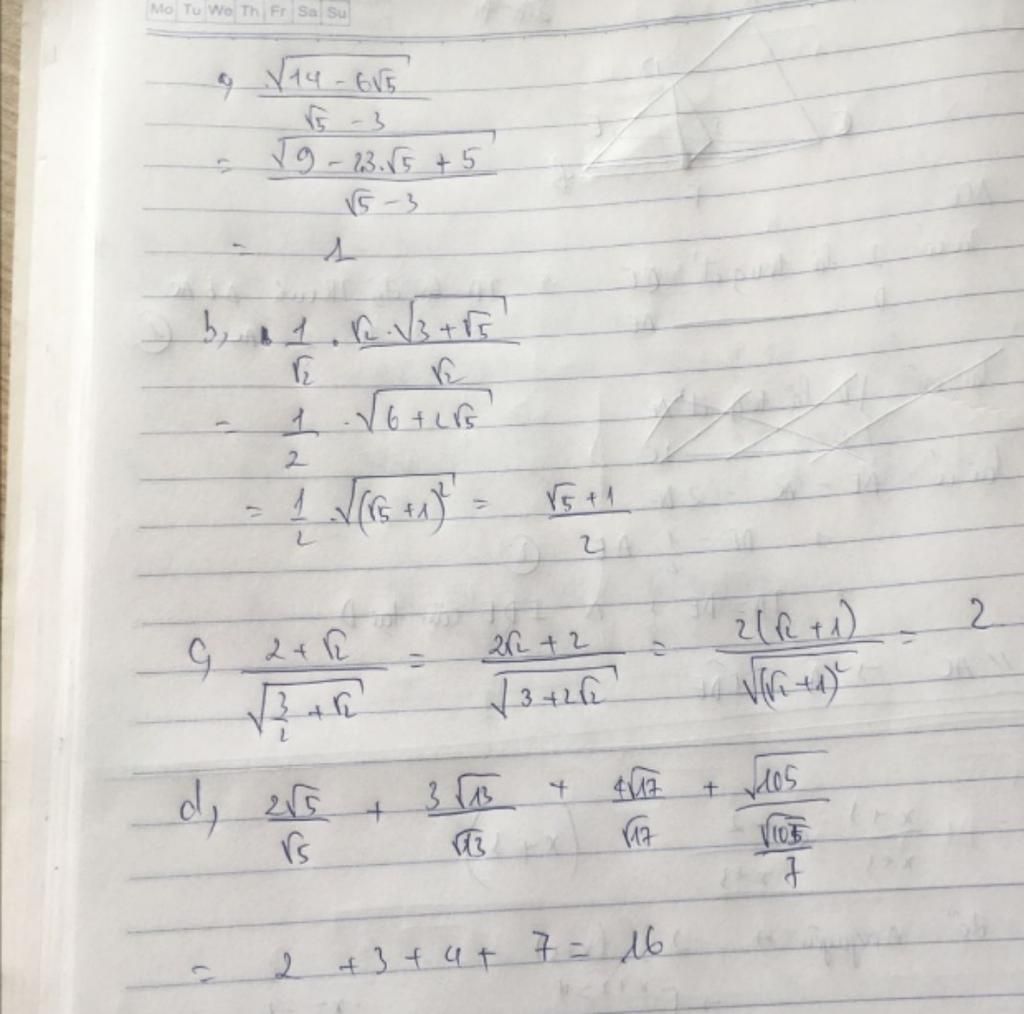 Mo Tu We Th Fr Sa Su
a, √(14 - 6√5) / (√5 - 3)
= √(9 - 2.3.√5 + 5) / (√5 - 3)
= 1
b, 1/√2 . √2 . √(3 + √5) / √2
= 1/2 . √(6 + 2√5)
= 1/2 . √((√5 + 1)²) = (√5 + 1) / 2
c, (2 + √2) / √(3/2 + √2) = (2√2 + 2) / √(3 + 2√2) = 2(√2 + 1) / √((√2 + 1)²) = 2
d, 2√5 / √5 + 3√13 / √13 + 4√17 / √17 + √105 / (√105 / 7)
= 2 + 3 + 4 + 7 = 16